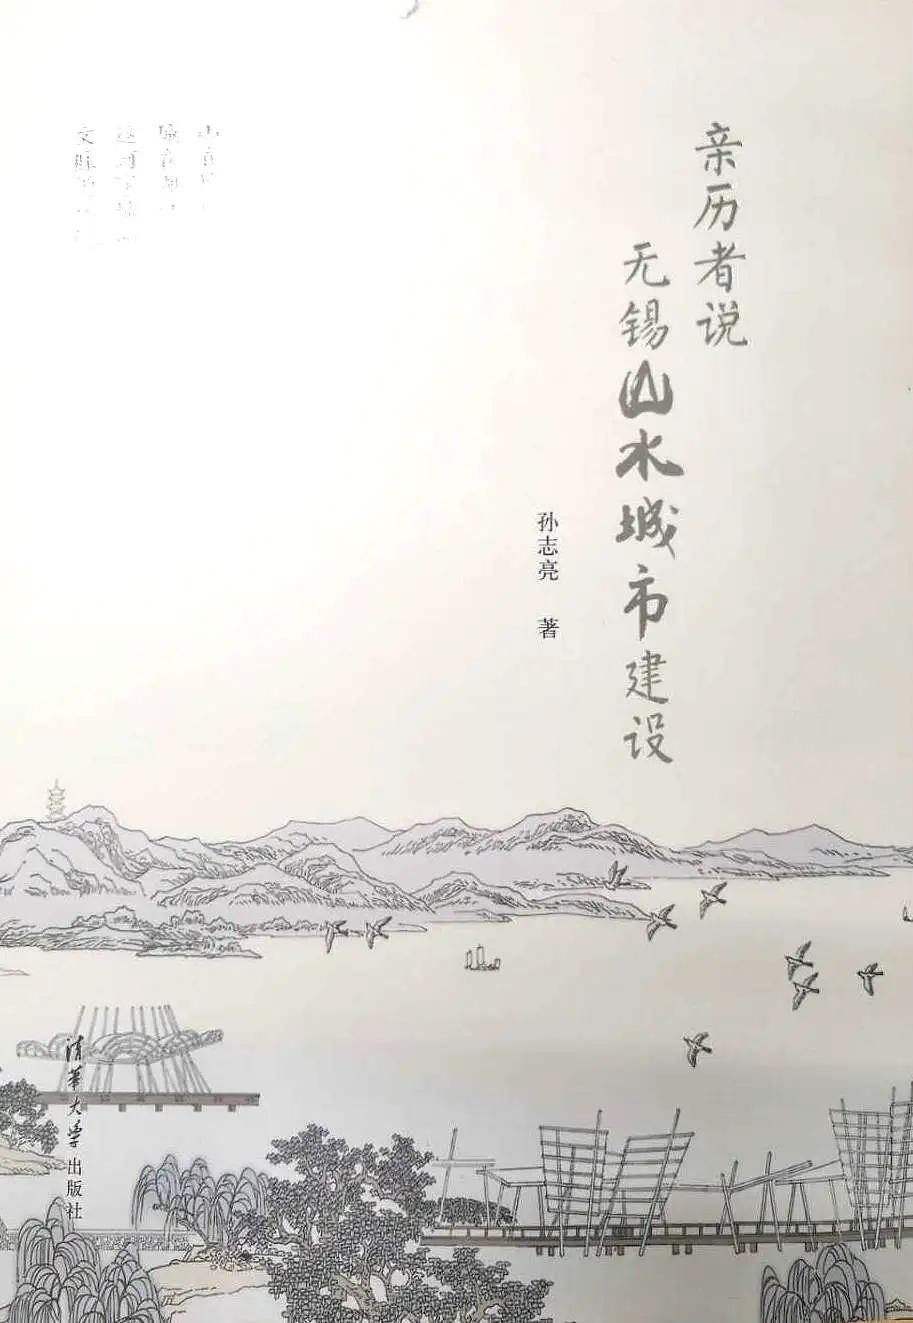 亲历者说
无锡山水城市建设
孙志亮 著
清华大学出版社